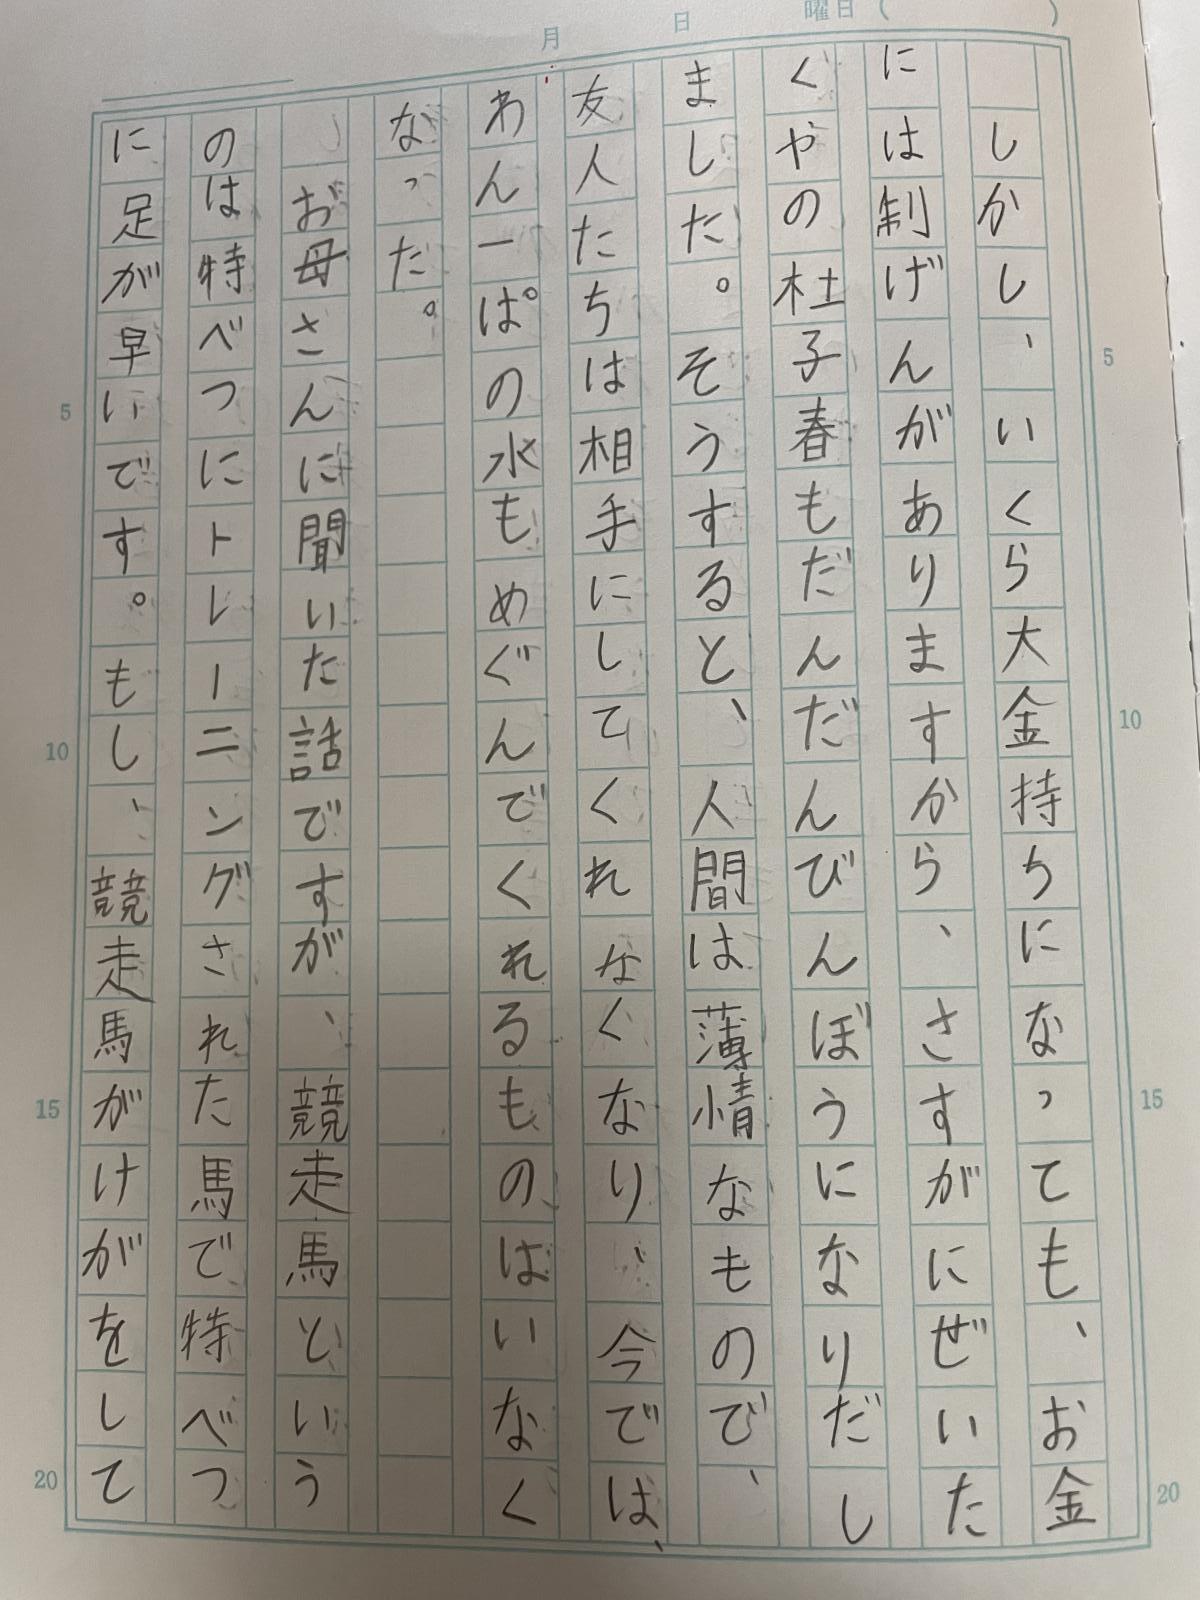 月 日 曜日 ( )
しかし、いくら大金持ちになっても、お金
には制げんがありますから、さすがにぜいた
くやの杜子春もだんだんびんぼうになりだし
ました。そうすると、人間は薄情なもので、
友人たちは相手にしてくれなくなり、今では、
わん一ぱの水もめぐんでくれるものはいなく
なった。
お母さんに聞いた話ですが、競走馬という
のは特べつにトレーニングされた馬で特べつ
に足が早いです。もし、競走馬がけがをして
5
10
15
20
5
10
15
20